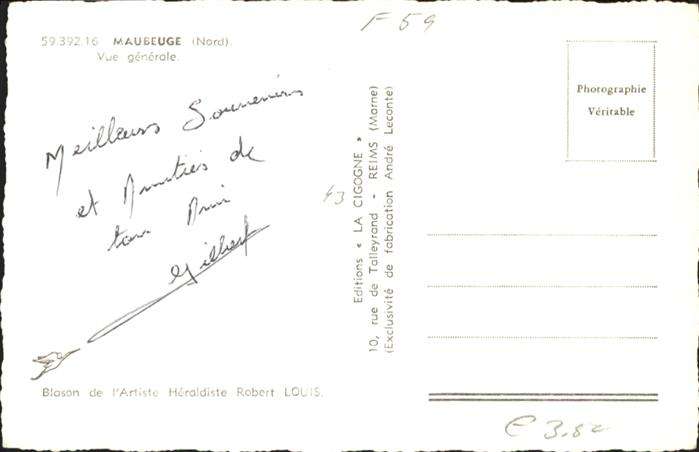 F 59
59.392.16 MAUBEUGE (Nord).
Vue générale.
Meilleurs Souvenirs
et Amitiés de
ton Ami
Gilbert
Blason de l'Artiste Héraldiste Robert LOUIS.
43
Editions « LA CIGOGNE »
10, rue de Talleyrand - REIMS (Marne)
(Exclusivité de fabrication André Leconte)
Photographie
Véritable